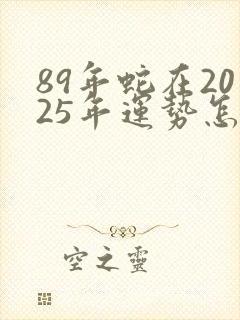 89年蛇在20
25年運勢怎
空之靈